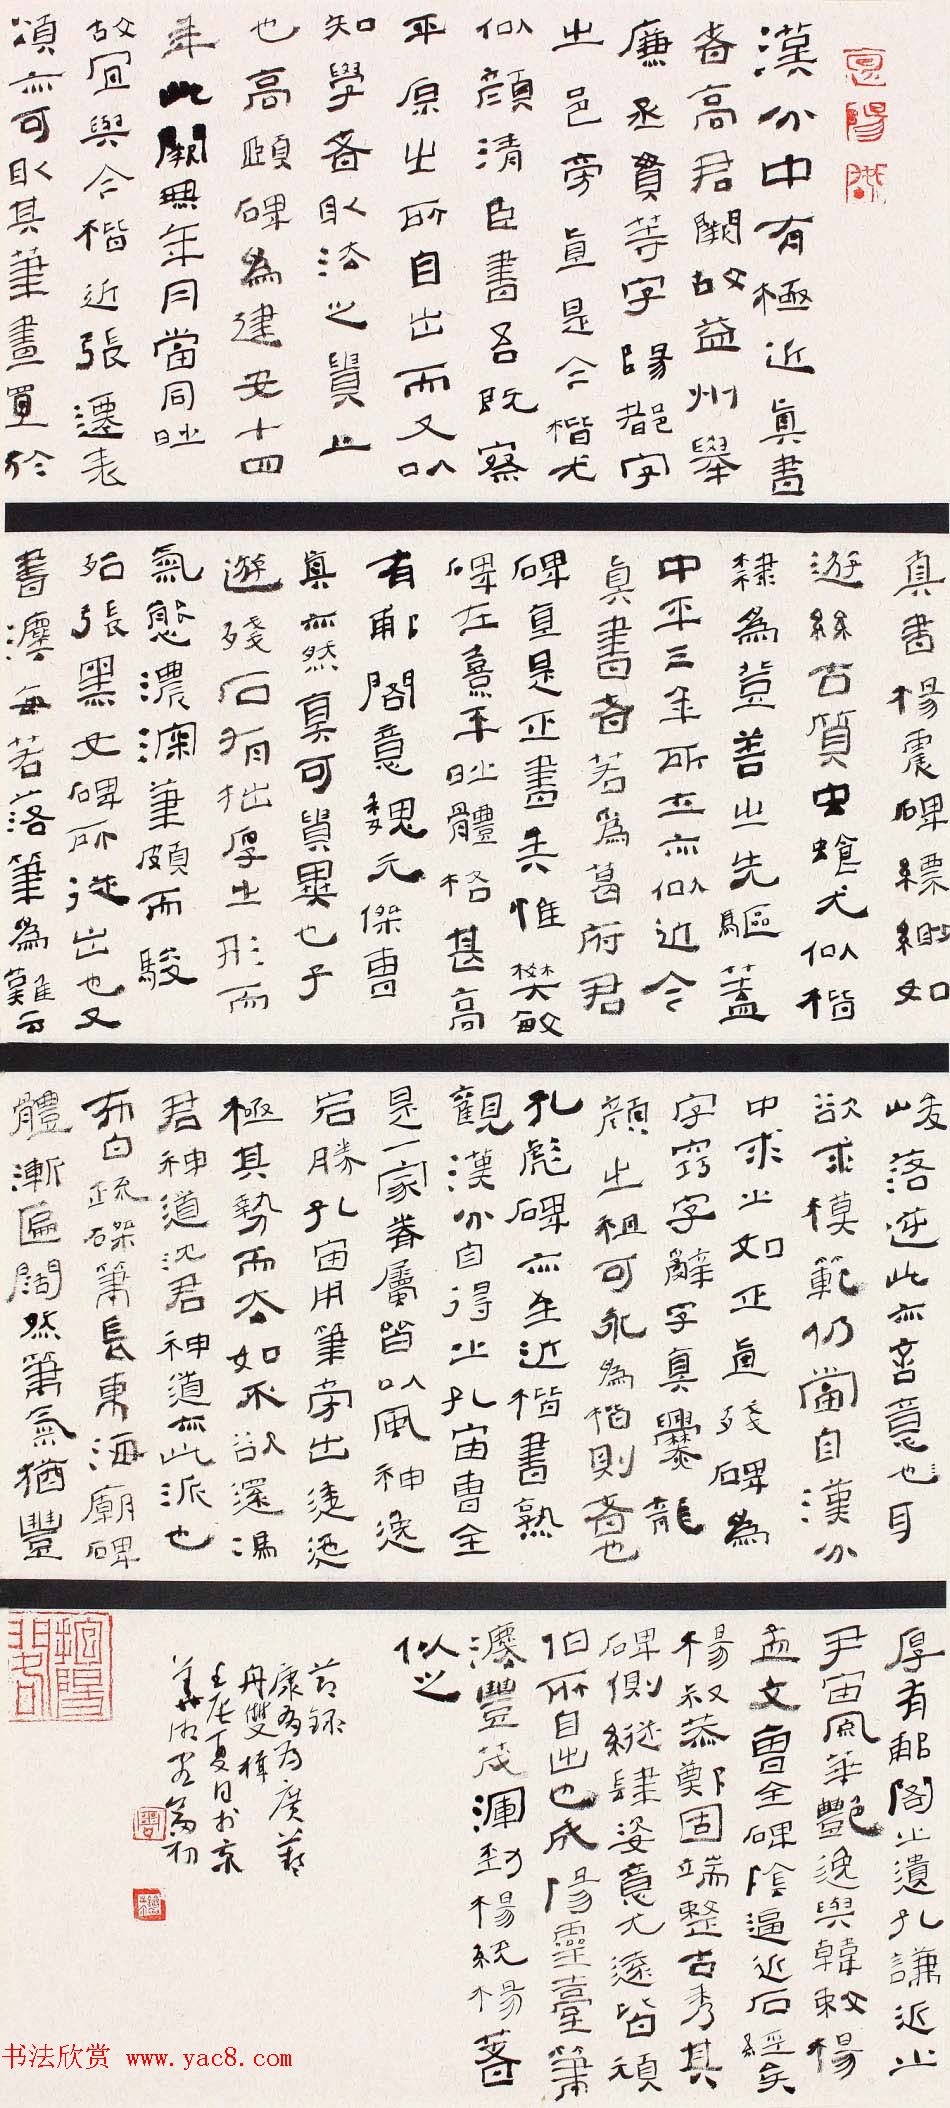 漢分中有極近真書
者高君闕故益州舉
廉丞貫等字陽都字
之邑旁直是今楷尤
似顏清臣書吾既察
平原之所自出而又以
知學者取法之貴上
也高頤碑為建安十四
年此闕無年月當同時
故宜與今楷近張遷表
頌亦可取其筆畫置於
真書楊震碑縹緲如
遊絲古質虫蝕尤似楷
隸為登善之先驅蓋
中平三年所立亦似近今
真書者若為葛府君
碑直是正書矣惟樊敏
碑在熹平時體格甚高
有郙閣意魏元傑曹
真亦然真可貴異也子
遊殘石有拙厚之形而
氣態濃深筆頗而駿
殆張黑女碑所從出也又
書法每苦落筆為難云
峻落逆此亦言意也耳
欲求模範仍當自漢分
中求之如正直殘碑為
字窮字辭字真爨龍
顏之祖可永為楷則者也
孔彪碑亦至近楷書熟
觀漢分自得之孔宙曹全
是一家眷屬皆以風神逸
宕勝孔宙用筆旁出逶迤
極其勢而去如不欲還馮
君神道沈君神道亦此派也
布白疏磔筆長東海廟碑
體漸匾闊然筆氣猶豐
厚有郙閣之遺孔謙近之
尹宙風華艷逸與韓敕楊
孟文曹全碑陰逼近石經矣
楊叔恭鄭固端整古秀其
碑側縱肆姿意尤遠皆頑
伯所自出也成陽靈臺筆
法豐茂渾勁楊統楊著
似之
節錄
康有為廣藝
舟雙楫
壬辰夏日於京
书法欣赏 www.yac8.com